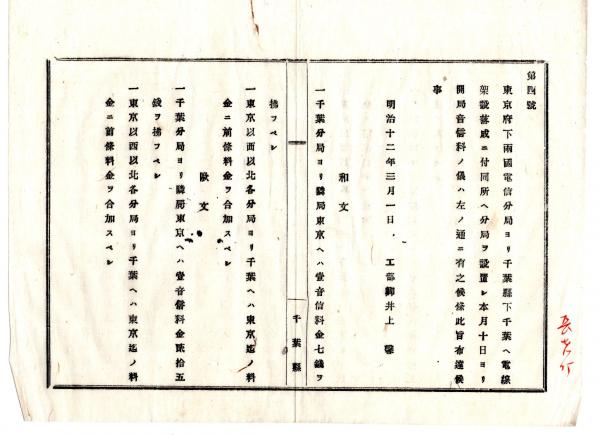 第四號
東京府下兩國電信分局ヨリ千葉縣下千葉ヘ電線
架設落成ニ付同所ヘ分局ヲ設置シ本月十日ヨリ
開局音信料ノ儀ハ左ノ通ニ有之候條此旨布達候
事
明治十二年三月一日 工部卿井上馨
和文
一千葉分局ヨリ隣局東京ヘハ壹音信料金七錢ヲ
拂フベシ
一東京以西以北各分局ヨリ千葉ヘハ東京迄ノ料
金ニ前條料金ヲ合加スベシ
歐文
一千葉分局ヨリ隣局東京ヘハ壹音信料金貳拾五
錢ヲ拂フベシ
一東京以西以北各分局ヨリ千葉ヘハ東京迄ノ料
金ニ前條料金ヲ合加スベシ
千葉縣